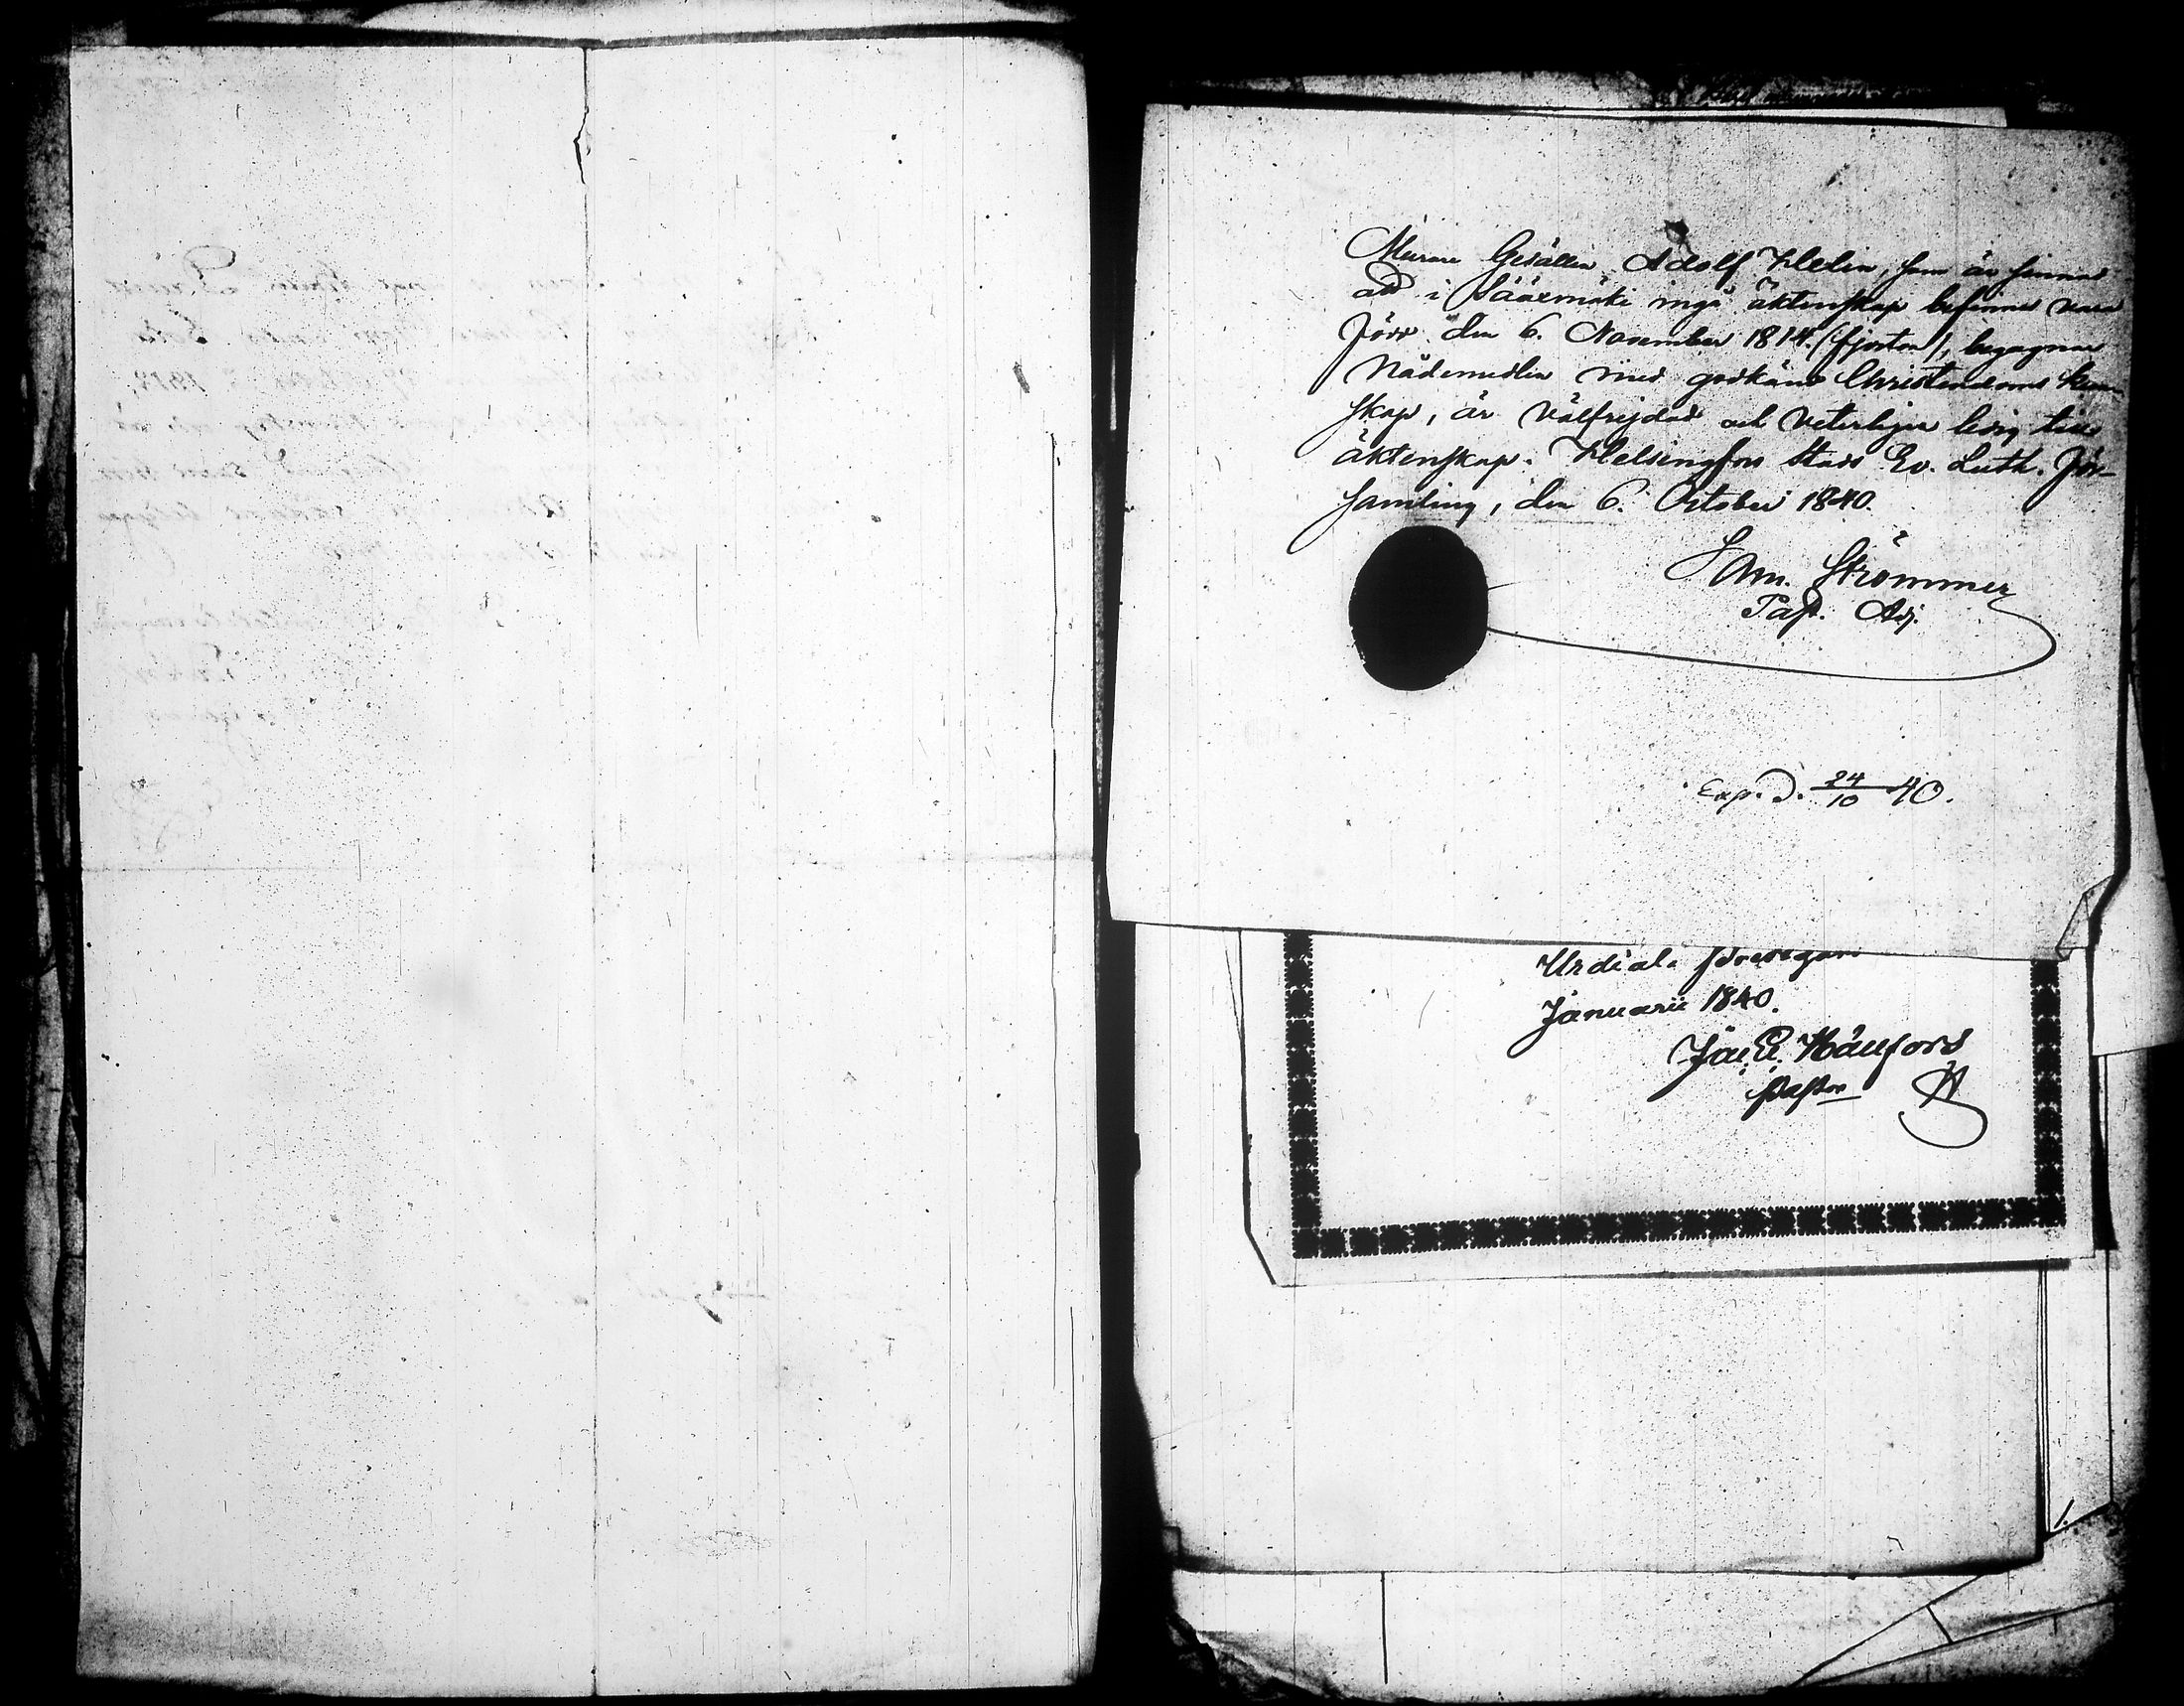 Murare Gesällen Adolf Helin, som är sinnad
att i Sääxmäki ingå äktenskap befinnes vara
född den 6. November 1814. (fjorton), begagnar
Nådemedlen med godkänd Christendoms kun-
skap, är välfrejdad och veterligen ledig till
äktenskap. Helsingfors Stads Ev. Luth. För-
samling, den 6. October 1840.
Sam. Strömmer
Past. Adj.
Exp. d. 24/10 40.
Urdiala prestgård
Januarii 1840.
Pastor
1.